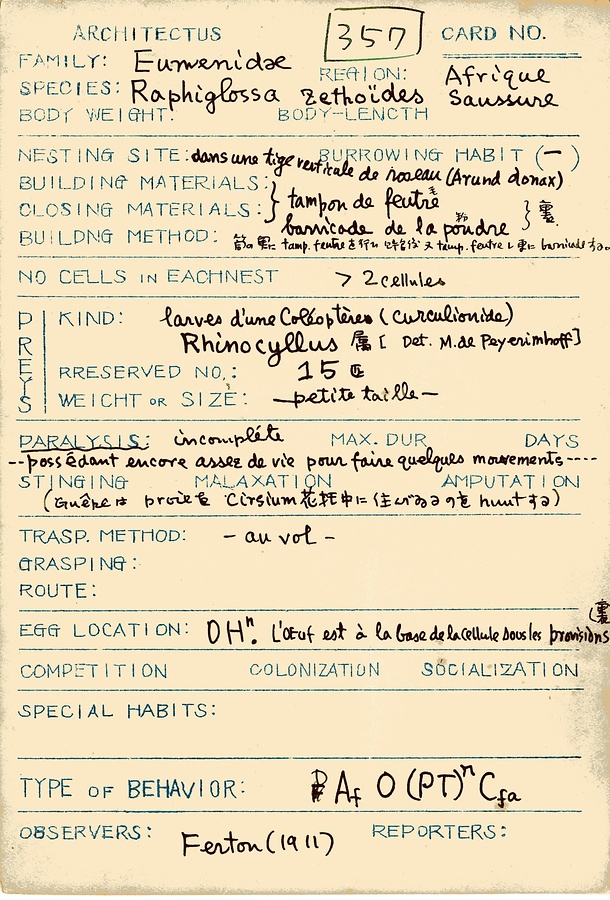 ARCHITECTUS 357 CARD NO.
FAMILY: Eumenidae REGION: Afrique
SPECIES: Raphiglossa zethoïdes Saussure
BODY WEIGHT: BODY-LENGTH
NESTING SITE: dans une tige verticale de roseau (Arund donax) BURROWING HABIT (–)
BUILDING MATERIALS: } tampon de feutre 毛 } 裏
CLOSING MATERIALS: barricade de la poudre 粉
BUILDNG METHOD: tamp. feutre を行い 又 tamp. feutre し 更に barricade する。
NO CELLS IN EACHNEST > 2 cellules
PREYS
KIND: larves d'une Coléoptères (Curculionide)
Rhinocyllus 属 [ Det. M. de Peyerimhoff ]
RRESERVED NO,: 15
WEICHT OR SIZE: – petite taille –
PARALYSIS: incompléte MAX. DUR DAYS
--possédant encore assez de vie pour faire quelques mouvements----
STINGING MALAXATION AMPUTATION
(Guêpe は proie を Cirsium 花托中に住びゐるのを hunt する)
TRASP. METHOD: – au vol –
GRASPING:
ROUTE:
(裏
EGG LOCATION: OHⁿ. L'Œuf est à la base de la cellule sous les provisions
COMPETITION COLONIZATION SOCIALIZATION
SPECIAL HABITS:
TYPE OF BEHAVIOR: Af O (PT)ⁿ Cfa
OBSERVERS: Ferton (1911) REPORTERS: